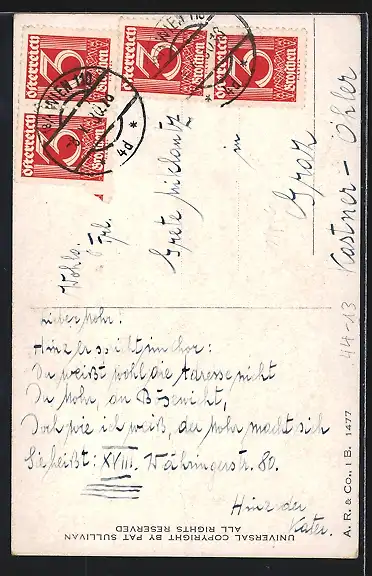 Österreich 3 Groschen
Österreich 3 Groschen
Österreich 3 Groschen
Österreich 3 Groschen
WIEN 110
4d
Wohlg.
Frl.
Grete
in
Graz
Kastner-Öhler
44-13
Lieber Mohr!
Hinz er spricht im chor:
Du weißt wohl die Adresse nicht
Du Mohr, du Bösewicht,
Doch wie ich weiß, der Mohr macht sich
Sie heißt: XVIII. Währingerstr. 80.
Hinz der
Kater.
A. R. & Co., I B. 1477
UNIVERSAL COPYRIGHT BY PAT SULLIVAN
ALL RIGHTS RESERVED